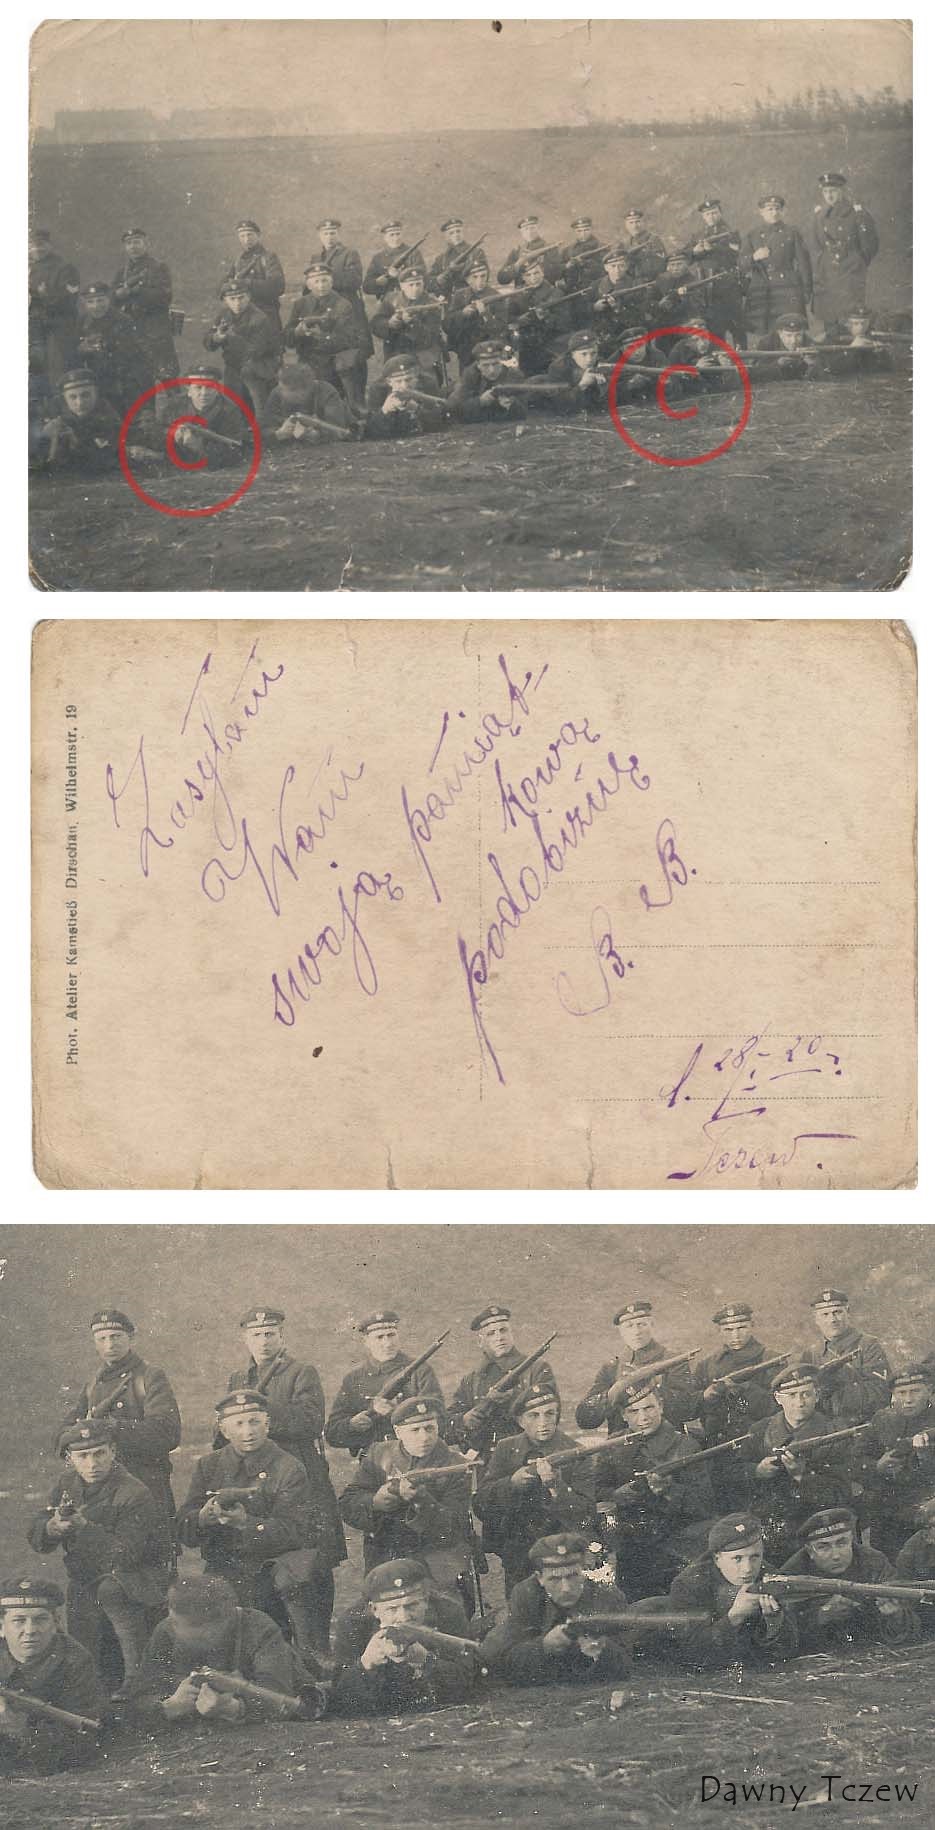 C
C
Phot. Atelier Kamstieß Dirschau, Wilhelmstr. 19
Zasyłam
Wam
swoją pamiąt-
kową
podobiznę
B. B.
d. 28/I.-20 r.
Tczew.
Dawny Tczew